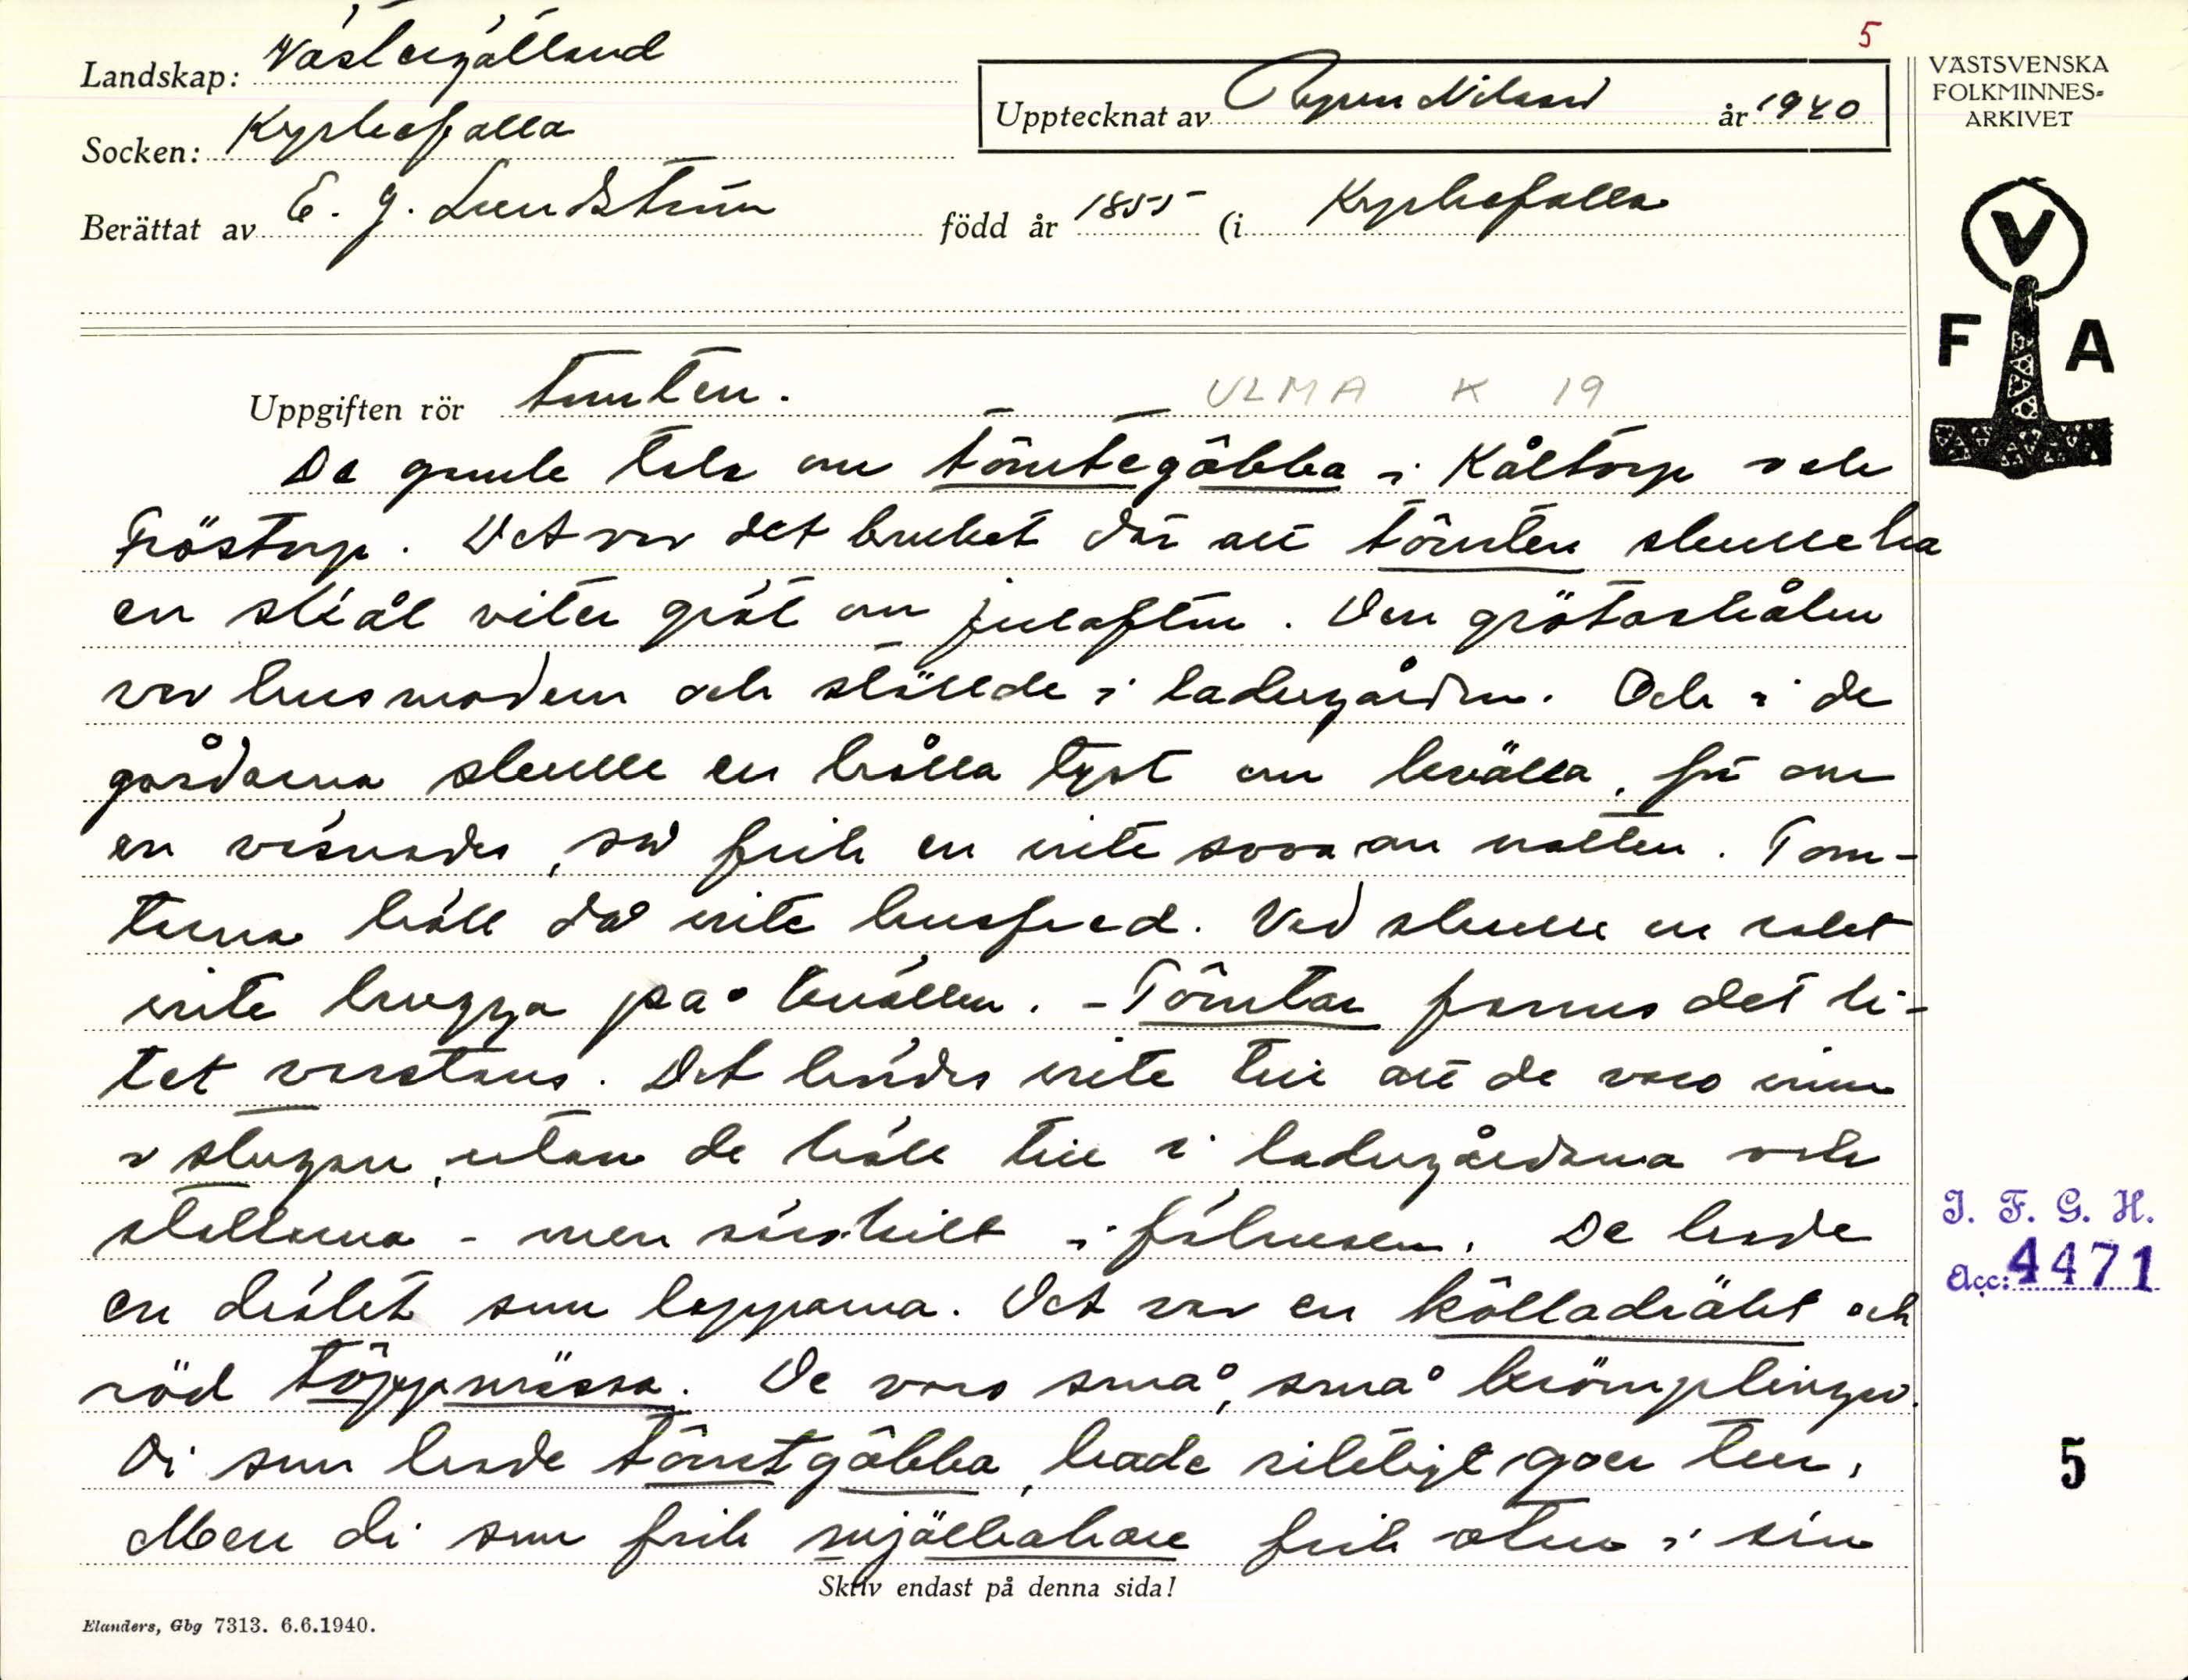 5
Landskap: Västergötland
Socken: Kyrkefalla
Upptecknat av Ragnar Nilsson år 1940
Berättat av E. J. Lundström född år 1855 (i Kyrkefalla
VÄSTSVENSKA
FOLKMINNES-
ARKIVET
V
F A
Uppgiften rör Tomten.
ULMA K 19
De gamle tala om tômtegôbba i Kåltorp och
Fröstorp. Det var det bruket där att tômten skulle ha
en skål viter gröt om julafton. Den grötaskålen
var husmodern och ställde i ladugården. Och i de
gårdarna skulle en hålla tyst om kvälla, för om
en väsnades, så fick en inte sova om natten. Tom-
tarna höll då inte husfred. Ved skulle en rakt
inte hugga på kvällen. - Tômtar fanns det li-
tet varstans. Det hördes inte till att de voro inne
i stugan, utan de höll till i ladugårdarna och
stallarna - men särskilt i fähusen. De hade
en dräkt som lapparna. Det var en kôlladräkt och
röd tôppmössa. De voro små, små krömplingar.
Di som hade tômtgôbba, hade riktigt goer tur.
Men di som fick mjölkahare fick otur i sin
Skriv endast på denna sida!
J. F. G. H.
Acc: 4471
5
Elanders, Gbg 7313. 6.6.1940.